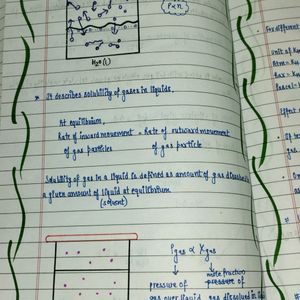 P ∝ n
H₂O (l)
* It describes solubility of gases in liquids.
At equilibrium,
Rate of inward movement = Rate of outward movement
of gas particles of gas particle
Solubility of gas in a liquid is defined as amount of gas dissolved in
a given amount of liquid at equilibrium
(solvent)
Pgas ∝ Xgas
pressure of mole fraction
gas over liquid gas dissolved in
For different
Unit of
Effect